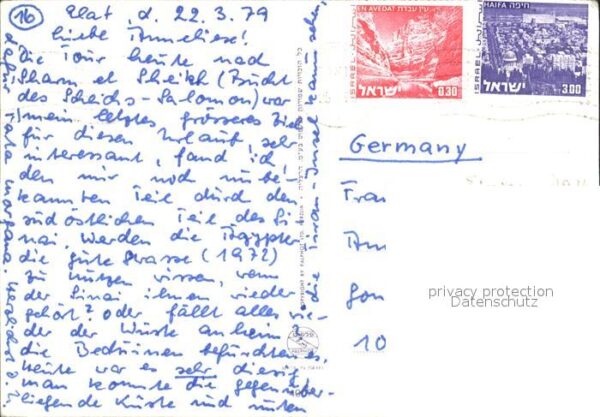 16
Elat, d. 22.3.79
Liebe Anneliese!
Die Tour heute nach
Sharm el Sheikh (Bucht
des Scheichs Salomon) war
mein letztes grösseres Ziel
für diesen Urlaub, sehr
interessant, fand ich
den mir noch unbe-
kannten Teil durch den
südöstlichen Teil des Si-
nai. Werden die Ägypter
die gute Strasse (1972)
zu nützen wissen, wenn
der Sinai ihnen wieder
gehört? oder fällt alles wie-
der der Wüste anheim
die Beduinen befürchten es.
Heute war es sehr diesig
man konnte die gegenüber-
liegende Küste und unten
die Tiran-Insel kaum sehen,
dafür Fata morgana. Herzlichst
EN AVEDAT עין עבדת
ISRAEL
ישראל
0.30
HAIFA חיפה
ISRAEL
ישראל
3.00
Germany
Frau
An
Gon
10
privacy protection
Datenschutz